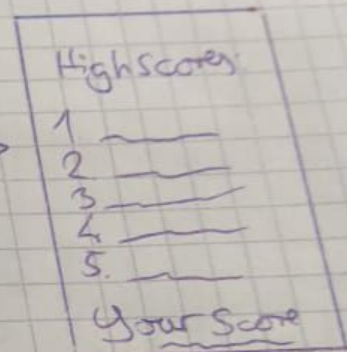 Highscores:
1
2
3
4
5.
Your Score